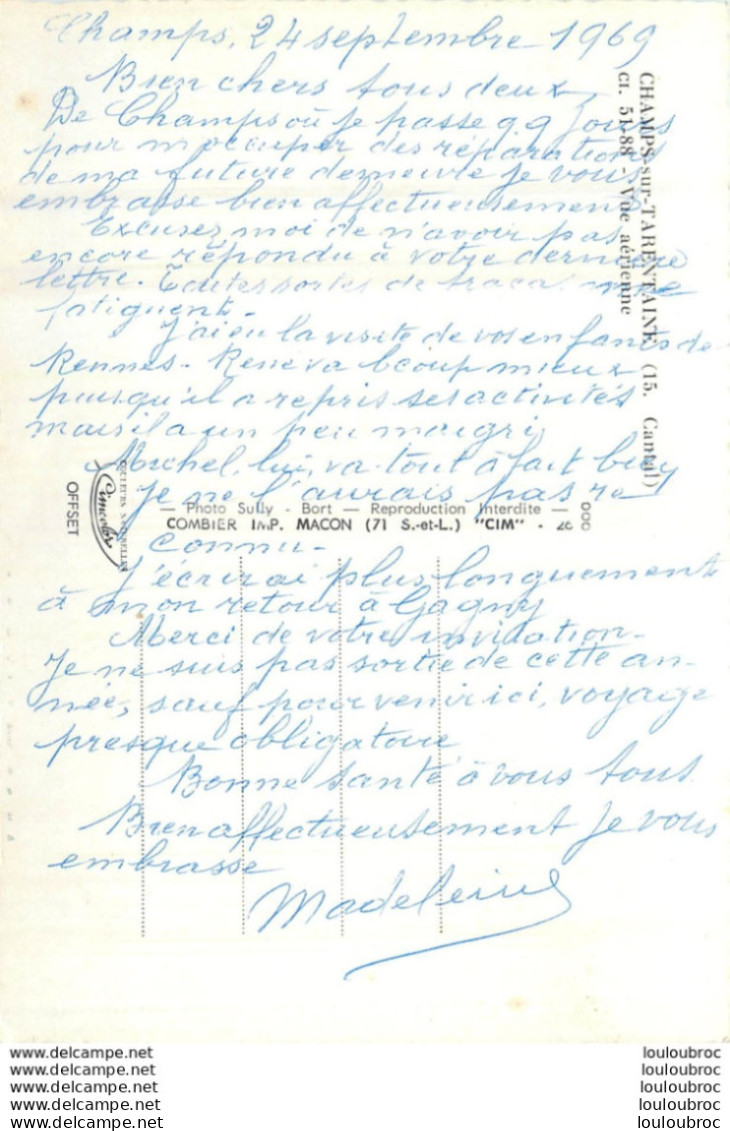 Champs, 24 septembre 1969
Bien chers tous deux,
De Champs où je passe q.q jours
pour m'occuper des réparations
de ma future demeure je vous
embrasse bien affectueusement
Excusez moi de n'avoir pas
encore répondu à votre dernière
lettre. Toutes sortes de tracas me
fatiguent.
J'ai eu la visite de vos enfants de
Rennes. René va bcoup mieux
puisqu'il a repris ses activités
mais il a un peu maigri
Michel, lui, va tout à fait bien
je ne l'aurais pas re
connu.
J'écrirai plus longuement
à mon retour à Gagny
Merci de votre invitation.
Je ne suis pas sortie de cette an-
née, sauf pour venir ici, voyage
presque obligatoire
Bonne santé à vous tous
Bien affectueusement je vous
embrasse
Madeleine
CHAMPS-sur-TARENTAINE (15. Cantal)
CI. 51-88 - Vue aérienne
— Photo Sully - Bort — Reproduction Interdite —
COMBIER IMP. MACON (71 S.-et-L.) "CIM" -
COULEURS NATURELLES
Cimcolor
OFFSET
www.delcampe.net
www.delcampe.net
www.delcampe.net
www.delcampe.net
www.delcampe.net
louloubroc
louloubroc
louloubroc
louloubroc
louloubroc